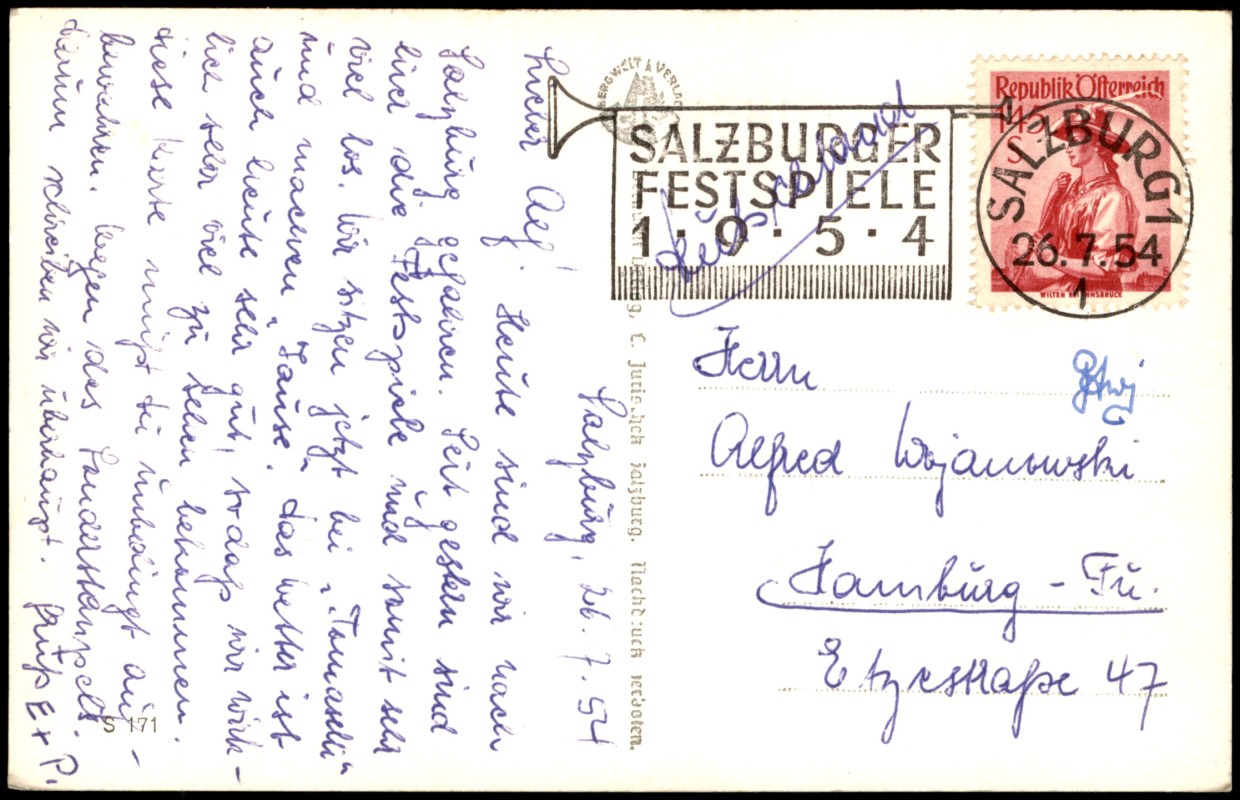 Salzburg, 26.7.54
Lieber Alf! Heute sind wir nach
Salzburg gefahren. Seit gestern sind
hier die Festspiele und somit sehr
viel los. Wir sitzen jetzt bei „Tomaselli“
und machen Pause. Das Wetter ist
auch heute sehr gut, sodaß wir wirk-
lich sehr viel zu sehen bekommen.
Diese Karte mußt du unbedingt auf-
bewahren. Wegen des Sonderstempels.
Darum schreiben wir überhaupt. Gruß E + P.
S 171
BERGWELT VERLAG
C. Jurischek Salzburg. Nachdruck verboten.
SALZBURGER
FESTSPIELE
1·9·5·4
Republik Österreich
1.45
S
WILTEN BEI INNSBRUCK
SALZBURG 1
26.7.54
1
Herrn
Alfred Wojanowski
Hamburg - Fu.
Etzestraße 47